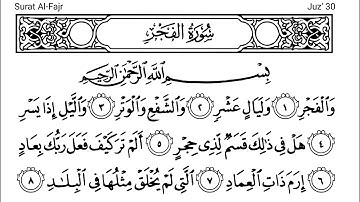 Surat Al-Fajr Juz' 30
سُورَةُ الفَجْرِ
بِسْمِ اللَّهِ الرَّحْمَٰنِ الرَّحِيمِ
وَالْفَجْرِ ١ وَلَيَالٍ عَشْرٍ ٢ وَالشَّفْعِ وَالْوَتْرِ ٣ وَاللَّيْلِ إِذَا يَسْرِ
٤ هَلْ فِي ذَٰلِكَ قَسَمٌ لِّذِي حِجْرٍ ٥ أَلَمْ تَرَ كَيْفَ فَعَلَ رَبُّكَ بِعَادٍ
٦ إِرَمَ ذَاتِ الْعِمَادِ ٧ الَّتِي لَمْ يُخْلَقْ مِثْلُهَا فِي الْبِلَادِ ٨